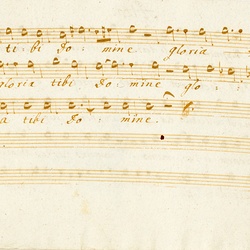 ti: bi do: mine gloria
gloria tibi do: mine glo:
a tibi do: mine.